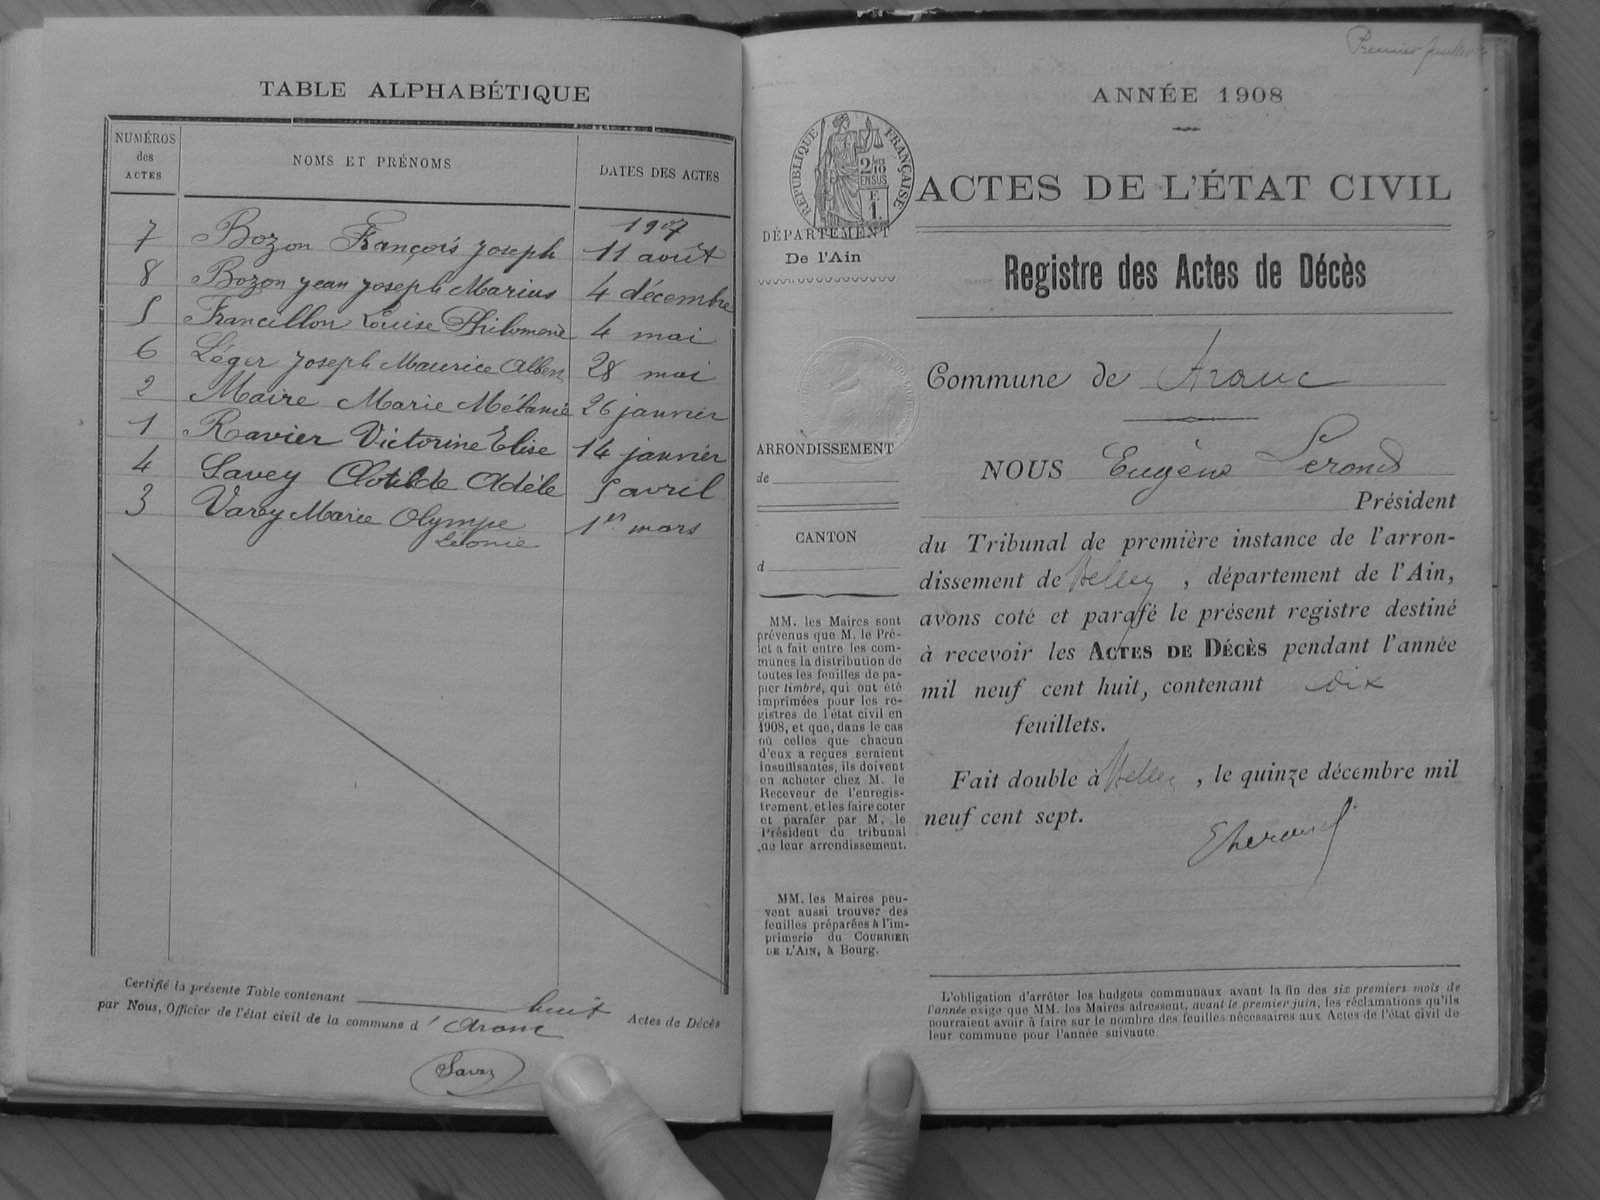 TABLE ALPHABÉTIQUE
NUMÉROS des ACTES
NOMS ET PRÉNOMS
DATES DES ACTES
1907
7 Bozon François Joseph 11 août
8 Bozon Jean Joseph Marius 4 décembre
5 Francillon Louise Philomène 4 mai
6 Léger Joseph Maurice Alben 28 mai
2 Maire Marie Mélanie 26 janvier
1 Ravier Victorine Elise 14 janvier
4 Savey Clotilde Adèle 5 avril
3 Varey Marie Olympe 1er mars
Léonie
Certifié la présente Table contenant huit Actes de Décès
par Nous, Officier de l'état civil de la commune d' Aranc
Savey
Premier feuillet
ANNÉE 1908
RÉPUBLIQUE FRANÇAISE
2/10 EN SUS
F. 1.
ACTES DE L'ÉTAT CIVIL
DÉPARTEMENT
De l'Ain
Registre des Actes de Décès
Commune de Aranc
ARRONDISSEMENT
de
CANTON
d
MM. les Maires sont
prévenus que M. le Pré-
fet a fait entre les com-
munes la distribution de
toutes les feuilles de pa-
pier timbré, qui ont été
imprimées pour les re-
gistres de l'état civil en
1908, et que, dans le cas
où celles que chacun
d'eux a reçues seraient
insuffisantes, ils doivent
en acheter chez M. le
Receveur de l'enregis-
trement, et les faire coter
et parafer par M. le
Président du tribunal
de leur arrondissement.
MM. les Maires peu-
vent aussi trouver des
feuilles préparées à l'im-
primerie du COURRIER
DE L'AIN, à Bourg.
NOUS Eugène
Président
du Tribunal de première instance de l'arron-
dissement de Belley, département de l'Ain,
avons coté et parafé le présent registre destiné
à recevoir les ACTES DE DÉCÈS pendant l'année
mil neuf cent huit, contenant dix
feuillets.
Fait double à Belley, le quinze décembre mil
neuf cent sept.
L'obligation d'arrêter les budgets communaux avant la fin des six premiers mois de
l'année exige que MM. les Maires adressent, avant le premier juin, les réclamations qu'ils
pourraient avoir à faire sur le nombre des feuilles nécessaires aux Actes de l'état civil de
leur commune pour l'année suivante.